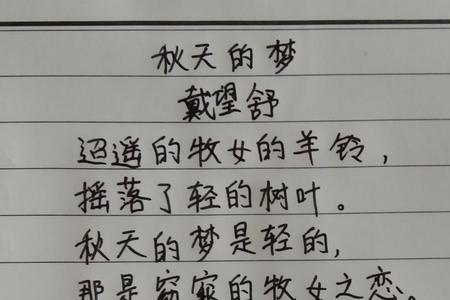 秋天的梦
戴望舒
迢遥的牧女的羊铃，
摇落了轻的树叶。
秋天的梦是轻的，
那是窈窕的牧女之恋。